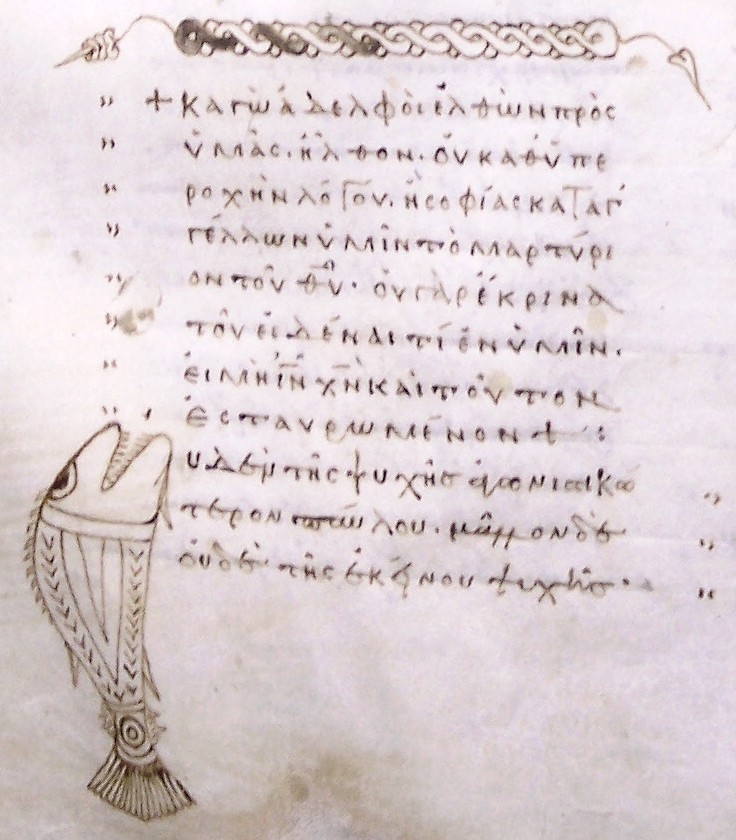 + Καγὼ ἀδελφοὶ ἐλθὼν πρὸς
ὑμᾶς. ἦλθον. οὐ καθ' ὑπε
ροχὴν λόγου. ἢ σοφίας καταγ
γέλλων ὑμῖν τὸ μαρτύρι
ον τοῦ θ̅υ̅· οὐ γὰρ ἔκρινα
τοῦ εἰδέναι τί ἐν ὑμῖν.
εἰ μὴ ι̅ν̅ χ̅ν̅ καὶ τοῦτον
ἐσταυρωμένον :
τῆς ψυχῆς
τερον παύλου. μᾶλλον δὲ
οὐδὲ τῆς ἐκείνου ψυχῆς·